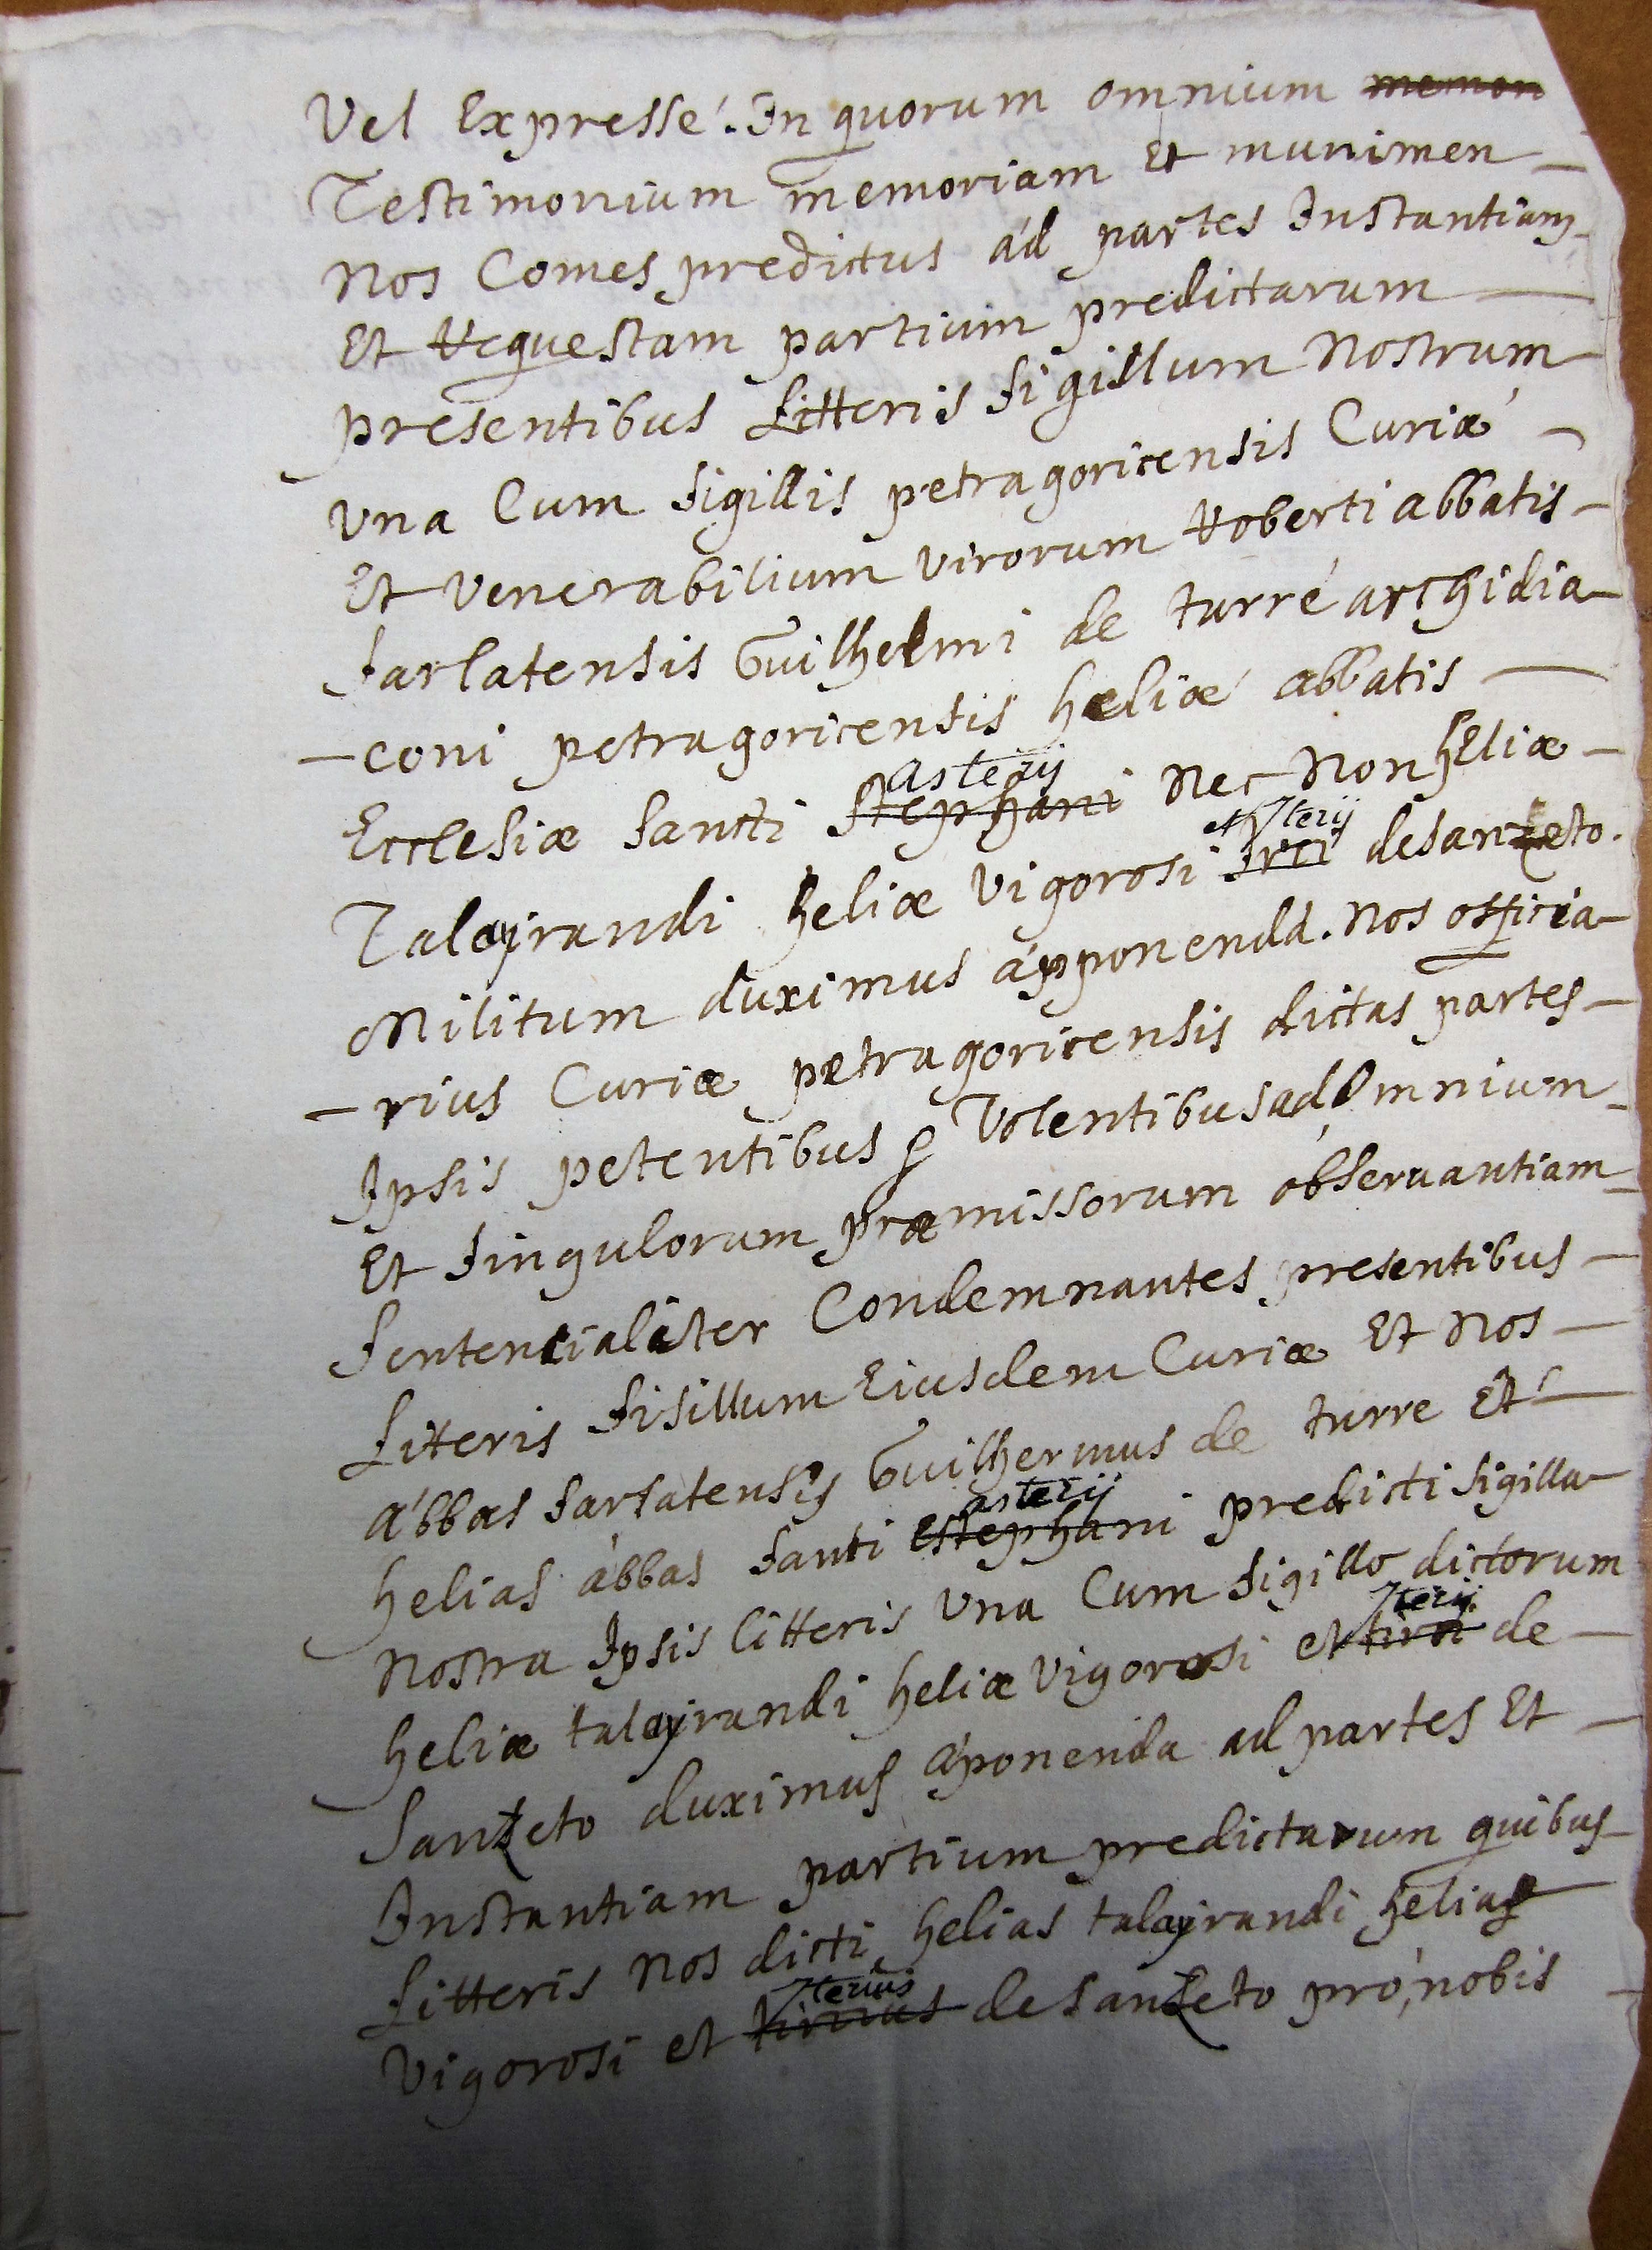 Vel Expressé. In quorum omnium memon
Testimonium memoriam Et munimen
Nos Comes predictus ád partes Instantiam
Et Requestam partium predictarum
presentibus Litteris Sigillum Nostrum
Vna Cum Sigillis petragoricensis Curiæ
Et Venerabilium Virorum Roberti abbatis
Sarlatensis Guilhelmi de turré archidia
-coni petragoricensis heliæ abbatis
Ecclesiæ Sancti Stephani asterij Nec Non heliæ
Taleyrandi heliæ Vigorosi et Iterij desanzeto.
Militum duximus ápponendá. Nos officia
-rius Curiæ petragoricensis dictas partes
Ipsis petentibus & Volentibus ad Omnium
Et Singulorum præmissorum observantiam
Sententialiter Condemnantes presentibus
Literis Sisillum Eiusdem Curiæ Et Nos
ábbas Sarlatensis Guilhermus de turre Et
helias ábbas Santi Estephani asterij predicti Sigilla
Nostra Ipsis litteris Vna Cum Sigillo dictorum
heliæ taleyrandi heliæ Vigorosi et Iterij de
Sanzeto duximus áponenda ad partes Et
Instantiam partium predictarum quibus
Litteris Nos dicti helias taleyrandi helias
Vigorosi et Iterius de Sanzeto pró nobis